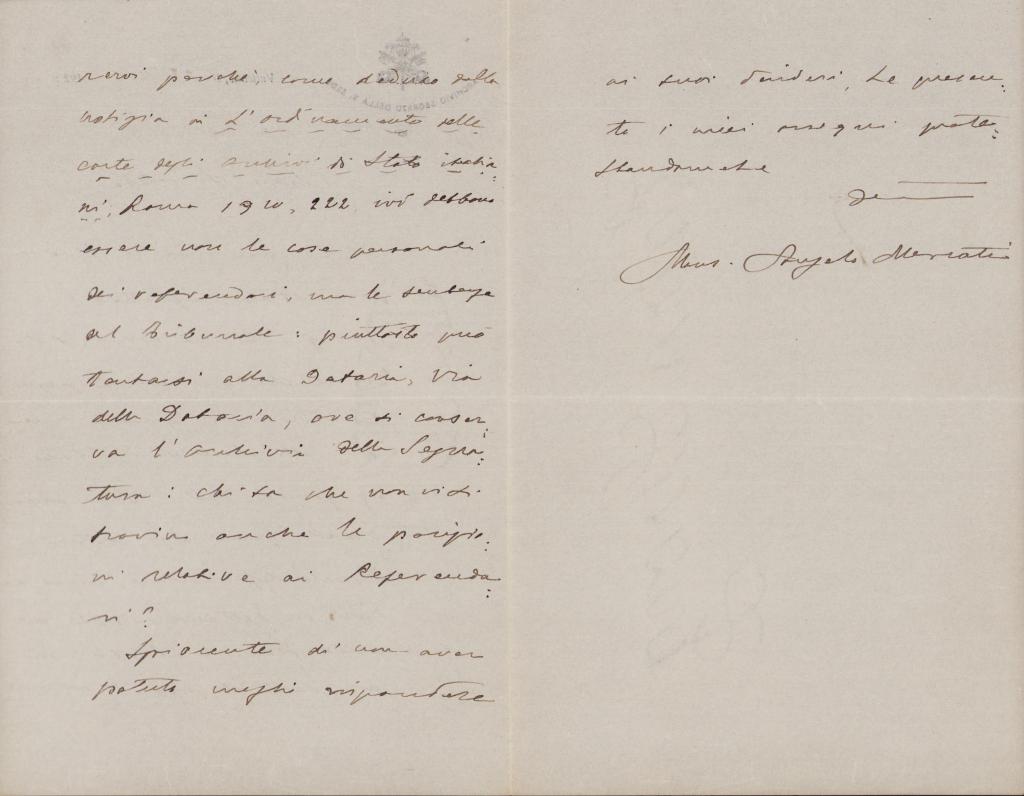 rervi perché, come deduco dalla
notizia in L'ordinamento delle
carte degli archivi di Stato italia:
ni, Roma 1910, 222 ivi debbono
essere non le cose personali
dei referendari, ma le sentenze
del Tribunale: piuttosto può
tentarsi alla Dataria, Via
della Dataria, ove si conser:
va l'archivio della Segna:
tura: chi sa che non vi si
trovino anche le posizio:
ni relative ai Referenda:
ri?
Spiacente di non aver
potuto meglio rispondere
ai suoi desideri, Le presen:
to i miei ossequi prote:
standomele
Mons. Angelo Mercati